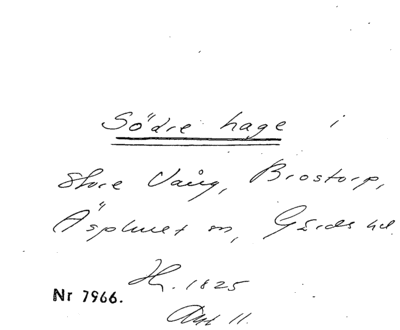 Södre hage i
Store Vång, Brostorp,
Äsplunet m, Gärds hd.
H. 1825
Nr 7966.
Akt 11.